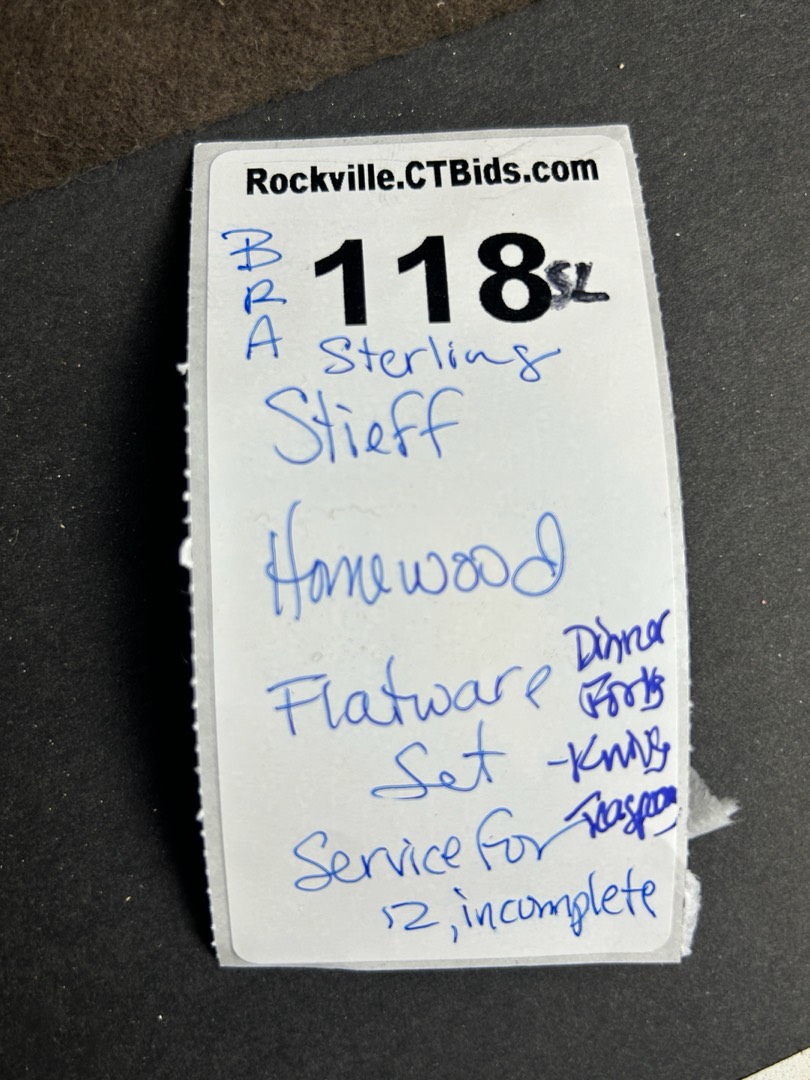 Rockville.CTBids.com
BRA
118 SL
Sterling
Stieff
Homewood
Flatware
Set
Service for
12, incomplete
Dinner
Forks
-Knives
Teaspoon